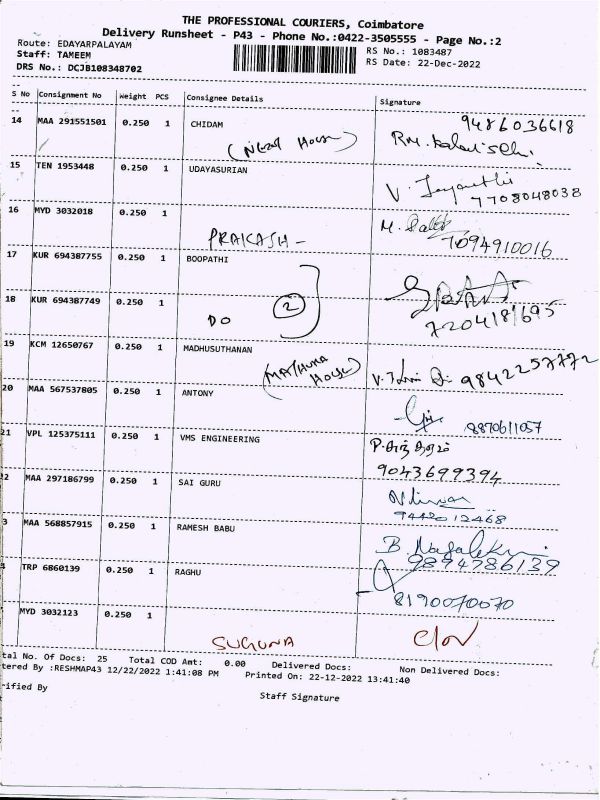 THE PROFESSIONAL COURIERS, Coimbatore
Delivery Runsheet - P43 - Phone No.:0422-3505555 - Page No.:2
Route: EDAYARPALAYAM
Staff: TAMEEM
DRS No.: DCJB108348702
RS No.: 1083487
RS Date: 22-Dec-2022
S No Consignment No Weight PCS Consignee Details Signature
14 MAA 291551501 0.250 1 CHIDAM 9486036618
(Next House)
15 TEN 1953448 0.250 1 UDAYASURIAN V. Jayanthi
7708048038
16 MYD 3032018 0.250 1 M.
PRAKASH - 7094910016
17 KUR 694387755 0.250 1 BOOPATHI
18 KUR 694387749 0.250 1 (2)
DO 7204181695
19 KCM 12650767 0.250 1 MADHUSUTHANAN
(MATHUNA HOUSE) 9842257772
20 MAA 567537805 0.250 1 ANTONY
8870611057
21 VPL 125375111 0.250 1 VMS ENGINEERING
9043699394
2 MAA 297186799 0.250 1 SAI GURU
9442012468
3 MAA 568857915 0.250 1 RAMESH BABU B.
9894786139
TRP 6860139 0.250 1 RAGHU
8190070070
MYD 3032123 0.250 1
SUGUNA
tal No. Of Docs: 25 Total COD Amt: 0.00 Delivered Docs: Non Delivered Docs:
tered By :RESHMAP43 12/22/2022 1:41:08 PM Printed On: 22-12-2022 13:41:40
rified By
Staff Signature